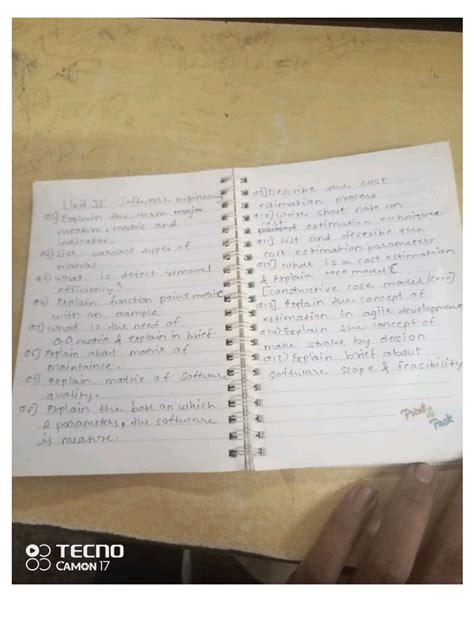 Unit II Software engineering
Q1] Explain the term major
measure, matric and
indicator.
Q2] List various types of
matrics
Q3] what is defect removal
efficiency?
Q4] Explain function point metric
with an example
Q5] what is the need of
O.O matrix & explain in brief.
Q6] Explain about matrix of
maintaince.
Q7] explain matrix of Software
quality.
Q8] Explain the base on which
2 parameters, the software
is measure.
Q9] Describe the cost
estimation process
Q10] write short note on
cost
estimation technique.
Q11] List and describe the
cost estimation parameters
Q12] what is a cost estimation
& Explain coco model
[constructive case model/coco]
Q13] Explain the concept of
estimation in agile development
Q14] Explain the concept of
make by design
Q15] Explain brief about
software scope & feasibility
Print
&
Pack
TECNO
CAMON 17